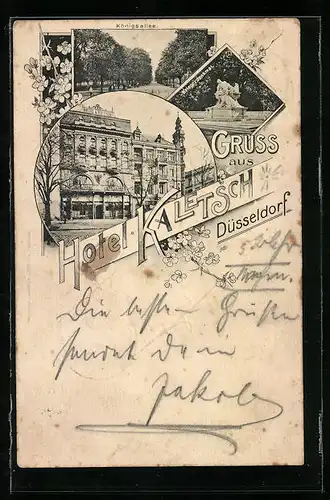 Königsallee
GRUSS
aus
Hotel-KALETSCH
Düsseldorf
Die besten Grüße
sendet dein
Jakob